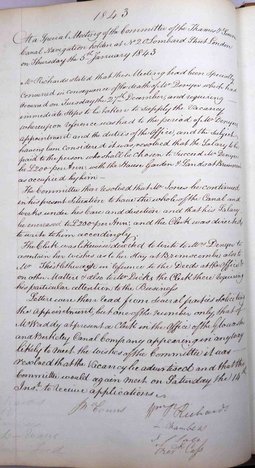 1843
At a Special Meeting of the Committee of the Thames & Severn
Canal Navigation holden at No 2 Lombard Street London
on Thursday the 5th January 1843
Mr Richards stated that this Meeting had been specially
Convened in consequence of the death of Mr Denyer which had
occurred on Tuesday the 27th December and requiring
immediate steps to be taken to supply the Vacancy
whereupon reference was had to the period of Mr Denyer's
Appointment and the duties of the Office, and the subject
having been considered it was resolved that the Salary to be
paid to the person who shall be chosen to succeed Mr Denyer
be £200 per Ann: with the House Garden & Land at Brimscomb
as occupied by him
The Committee then resolved that Mr Jones be continued
in his present situation to have the whole of the Canal and
Works under his Care and direction and that his Salary
be increased to £200 per Ann: and the Clerk was directed
to write to him accordingly
The Clerk was likewise directed to write to Mrs Denyer to
ascertain her wishes as to her stay at Brimscomb also to
Mr in reference to the Deeds at the Office and
on other matters & also to Mr the Clerk there requiring
his particular attention to the Business
Letters were then read from several parties soliciting
the Appointment, but one of the number only, that of
Mr at present a Clerk in the Office of the Gloucester
and Berkeley Canal Company appearing in any way
likely to meet the wishes of the Committee it was
resolved that the Vacancy be advertised and that the
Committee would again meet on Saturday the 14th
Inst. to receive applications
Wm Richards
Chambers